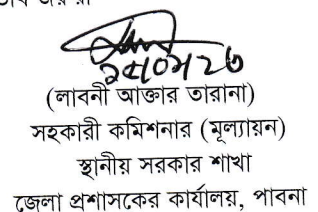 (লাবনী আক্তার তারানা)
সহকারী কমিশনার (মূল্যায়ন)
স্থানীয় সরকার শাখা
জেলা প্রশাসকের কার্যালয়, পাবনা